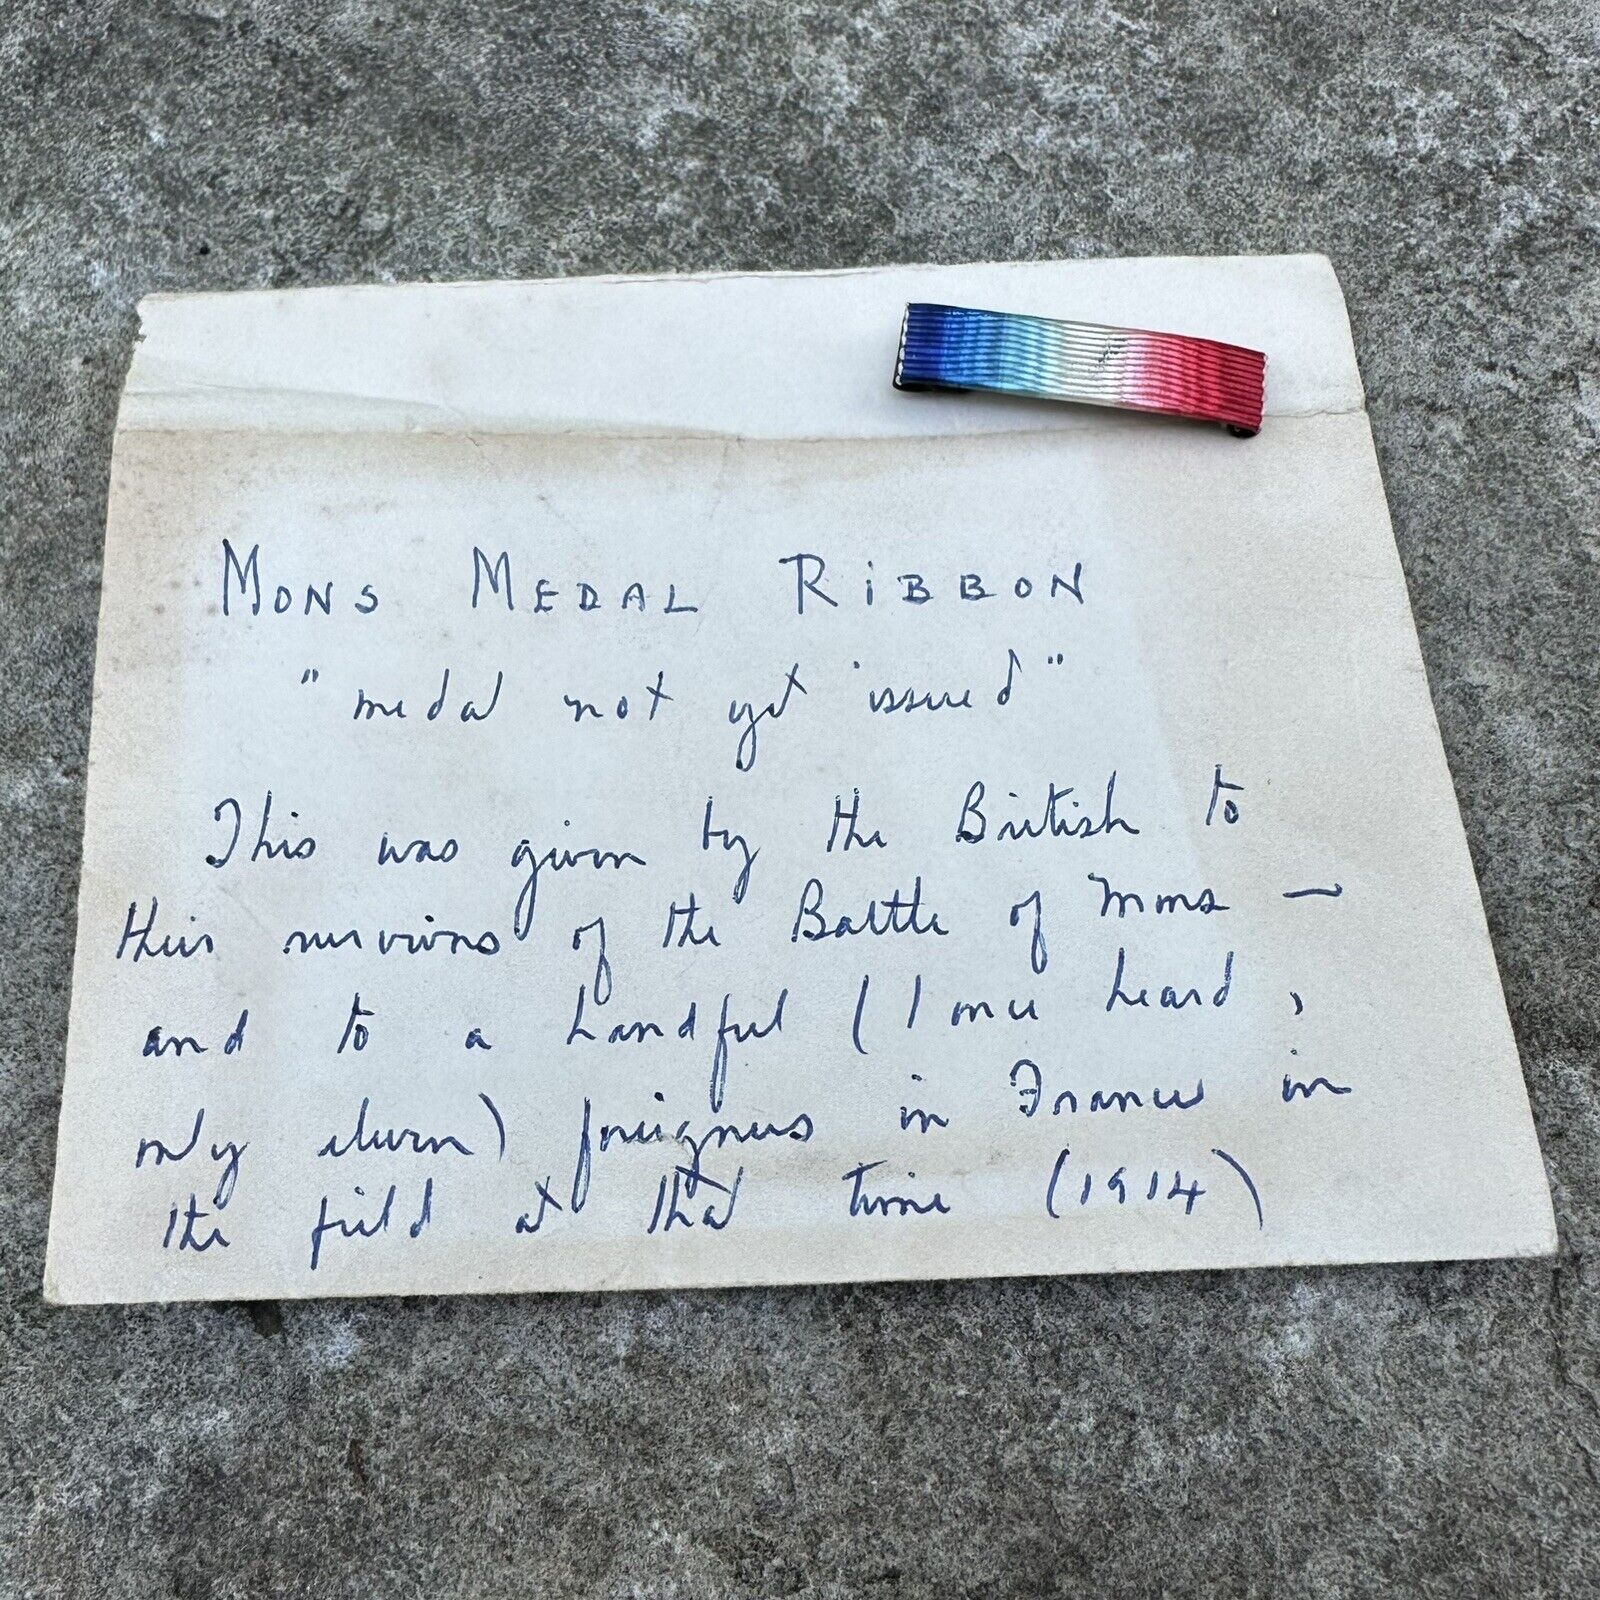 MONS MEDAL RIBBON
"medal not yet issued"
This was given by the British to
their survivors of the Battle of Mons —
and to a handful (I once heard,
only eleven) foreigners in France in
the field at that time (1914)